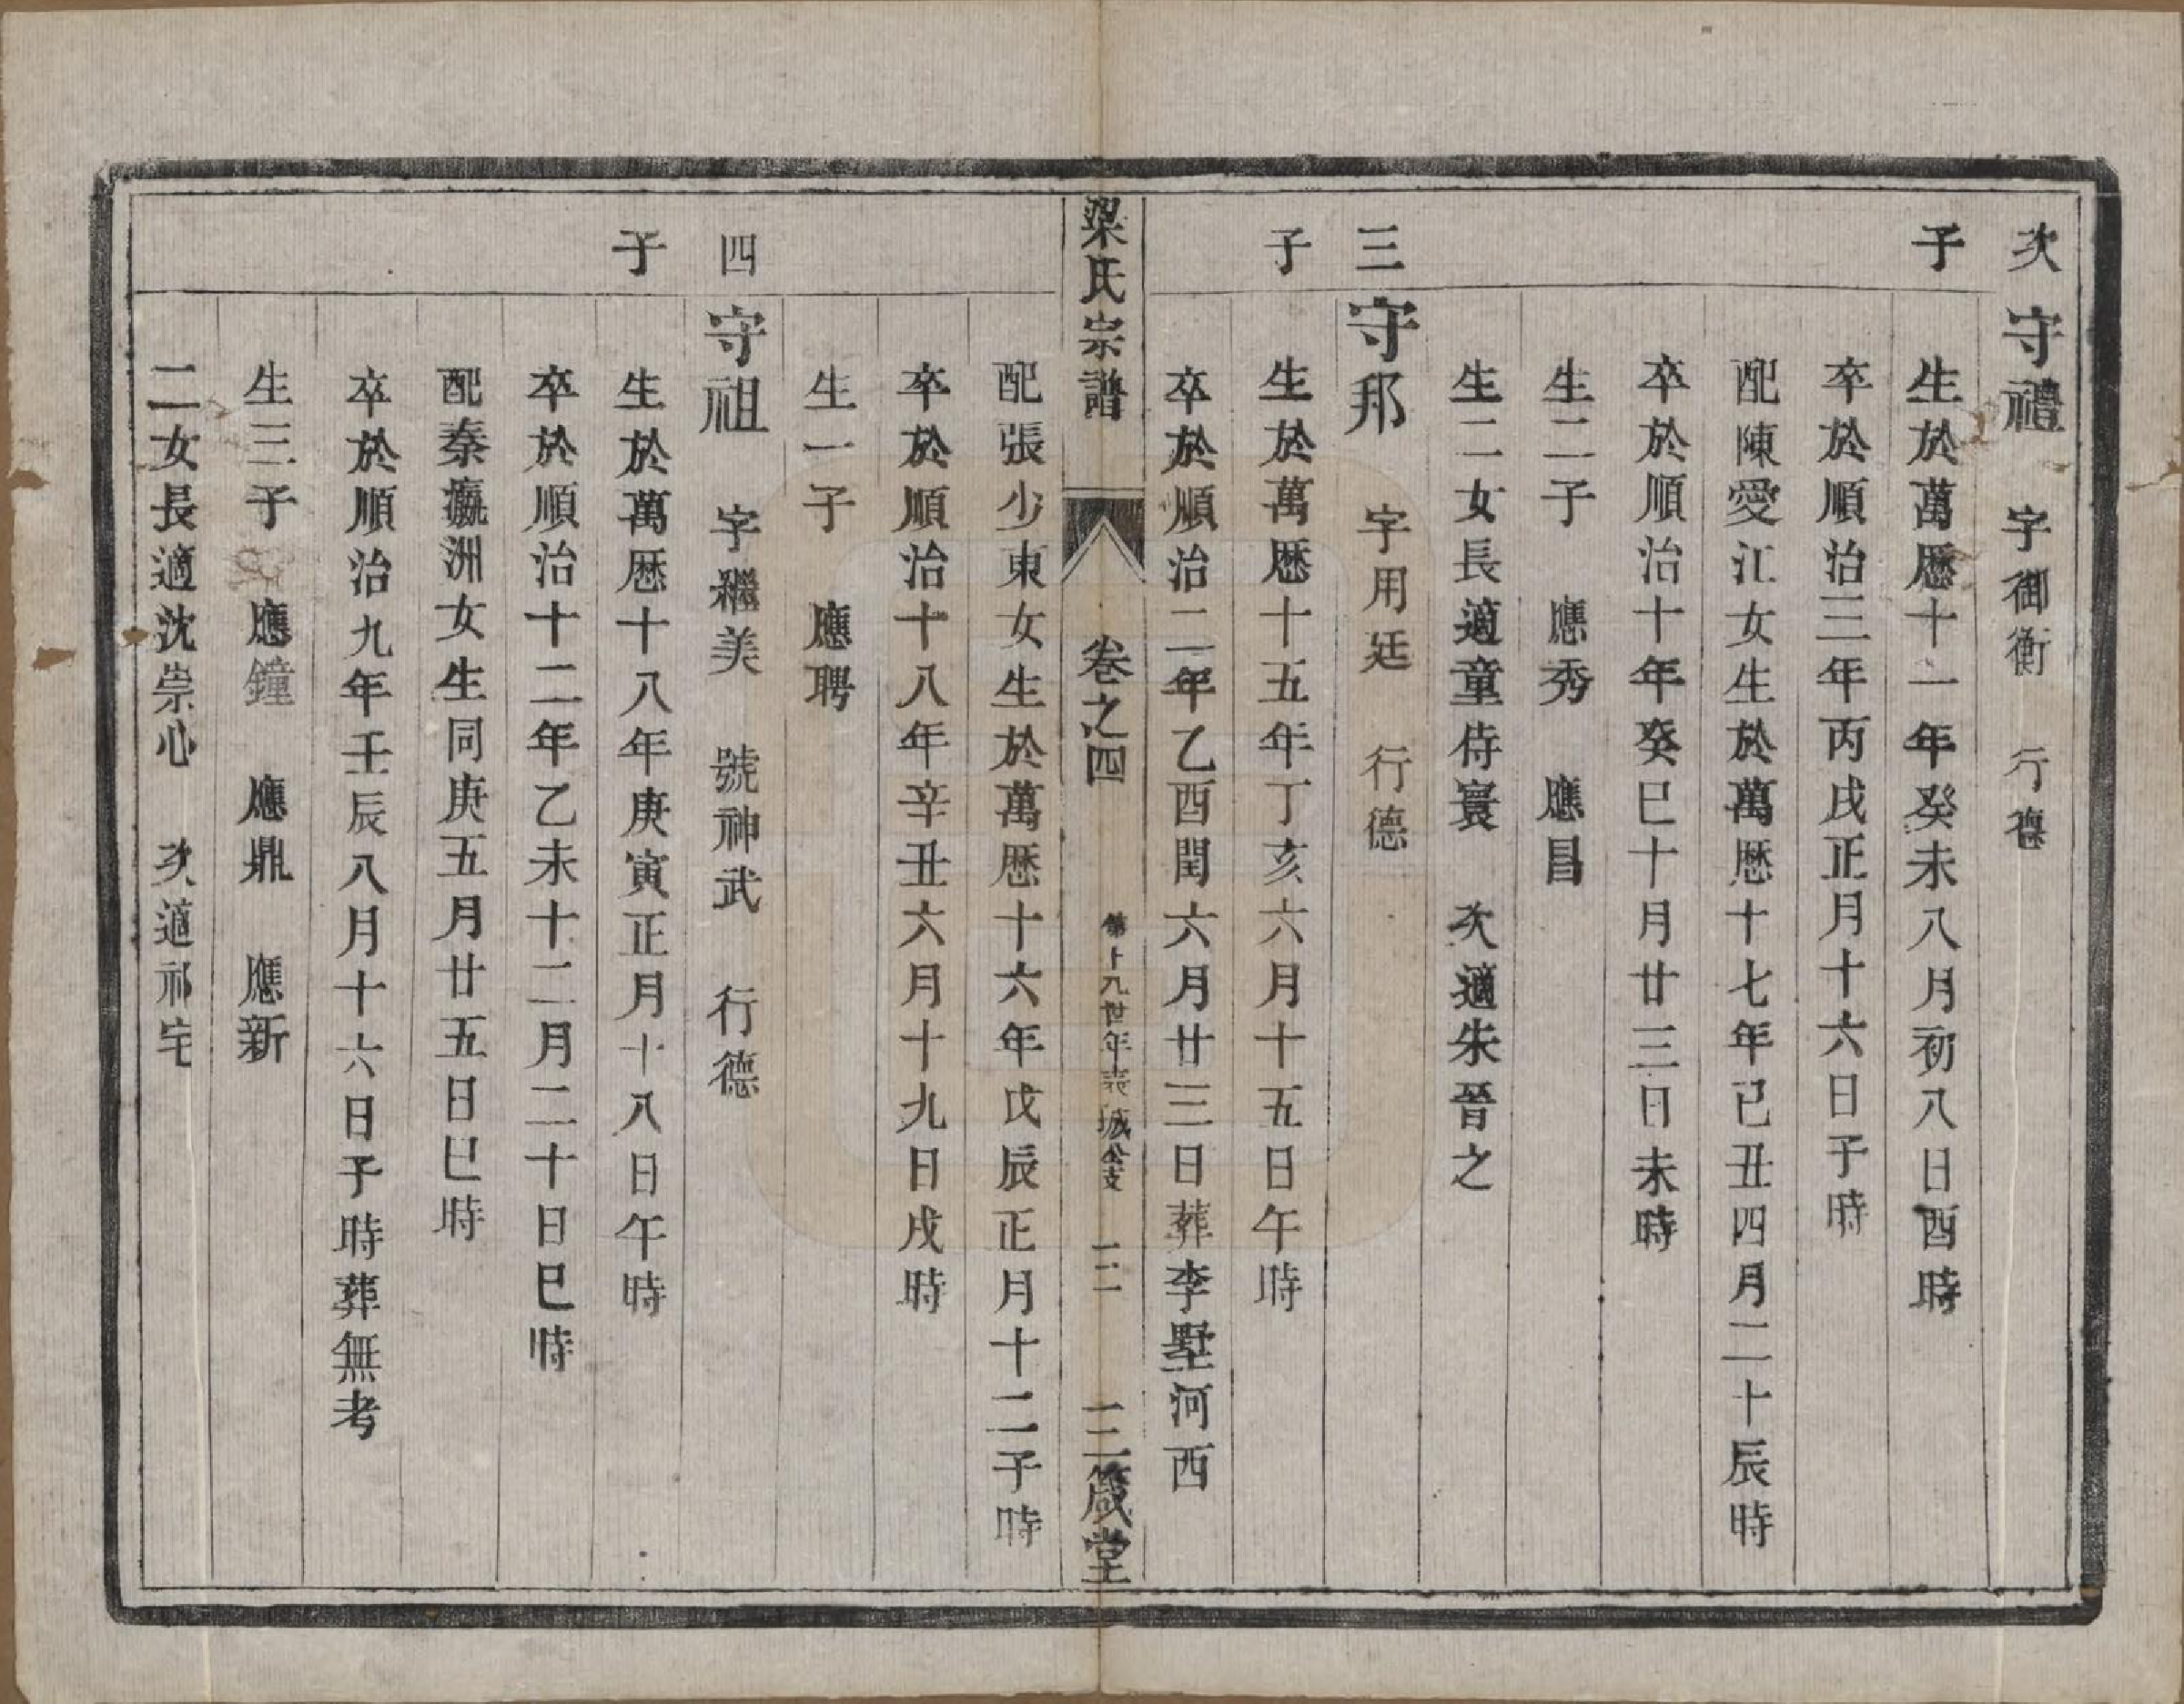 次子　守禮　字御衡　行德
生於萬厯十一年癸未八月初八日酉時
卒於順治三年丙戌正月十六日子時
配陳愛江女生於萬厯十七年己丑四月二十辰時
卒於順治十年癸巳十月廿三日未時
生二子　應秀　應昌
生二女長適童侍寰　次適朱晉之
三子　守邦　字用廷　行德
生於萬厯十五年丁亥六月十五日午時
卒於順治二年乙酉閏六月廿三日葬李墅河西
梁氏宗譜　卷之四　第十九世年表城公支　二　三箴堂
配張少東女生於萬厯十六年戊辰正月十二子時
卒於順治十八年辛丑六月十九日戌時
生一子　應聘
四子　守祖　字繼美　號神武　行德
生於萬厯十八年庚寅正月十八日午時
卒於順治十二年乙未十二月二十日巳時
配秦瀛洲女生同庚五月廿五日巳時
卒於順治九年壬辰八月十六日子時葬無考
生三子　應鐘　應鼎　應新
二女長適沈崇心　次適祁宅